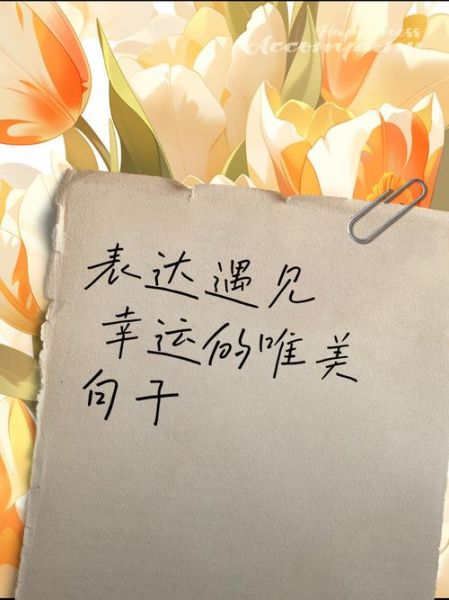 Happiness
Accompany
表达遇见
幸运的唯美
句子